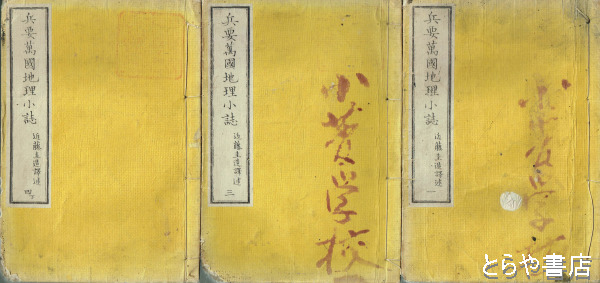 兵要萬國地理小誌
近藤圭造譯述
一
兵要萬國地理小誌
近藤圭造譯述
三
小黄学校
兵要萬國地理小誌
近藤圭造譯述
とらや書店